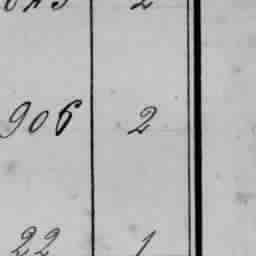 2
906 2
22 1